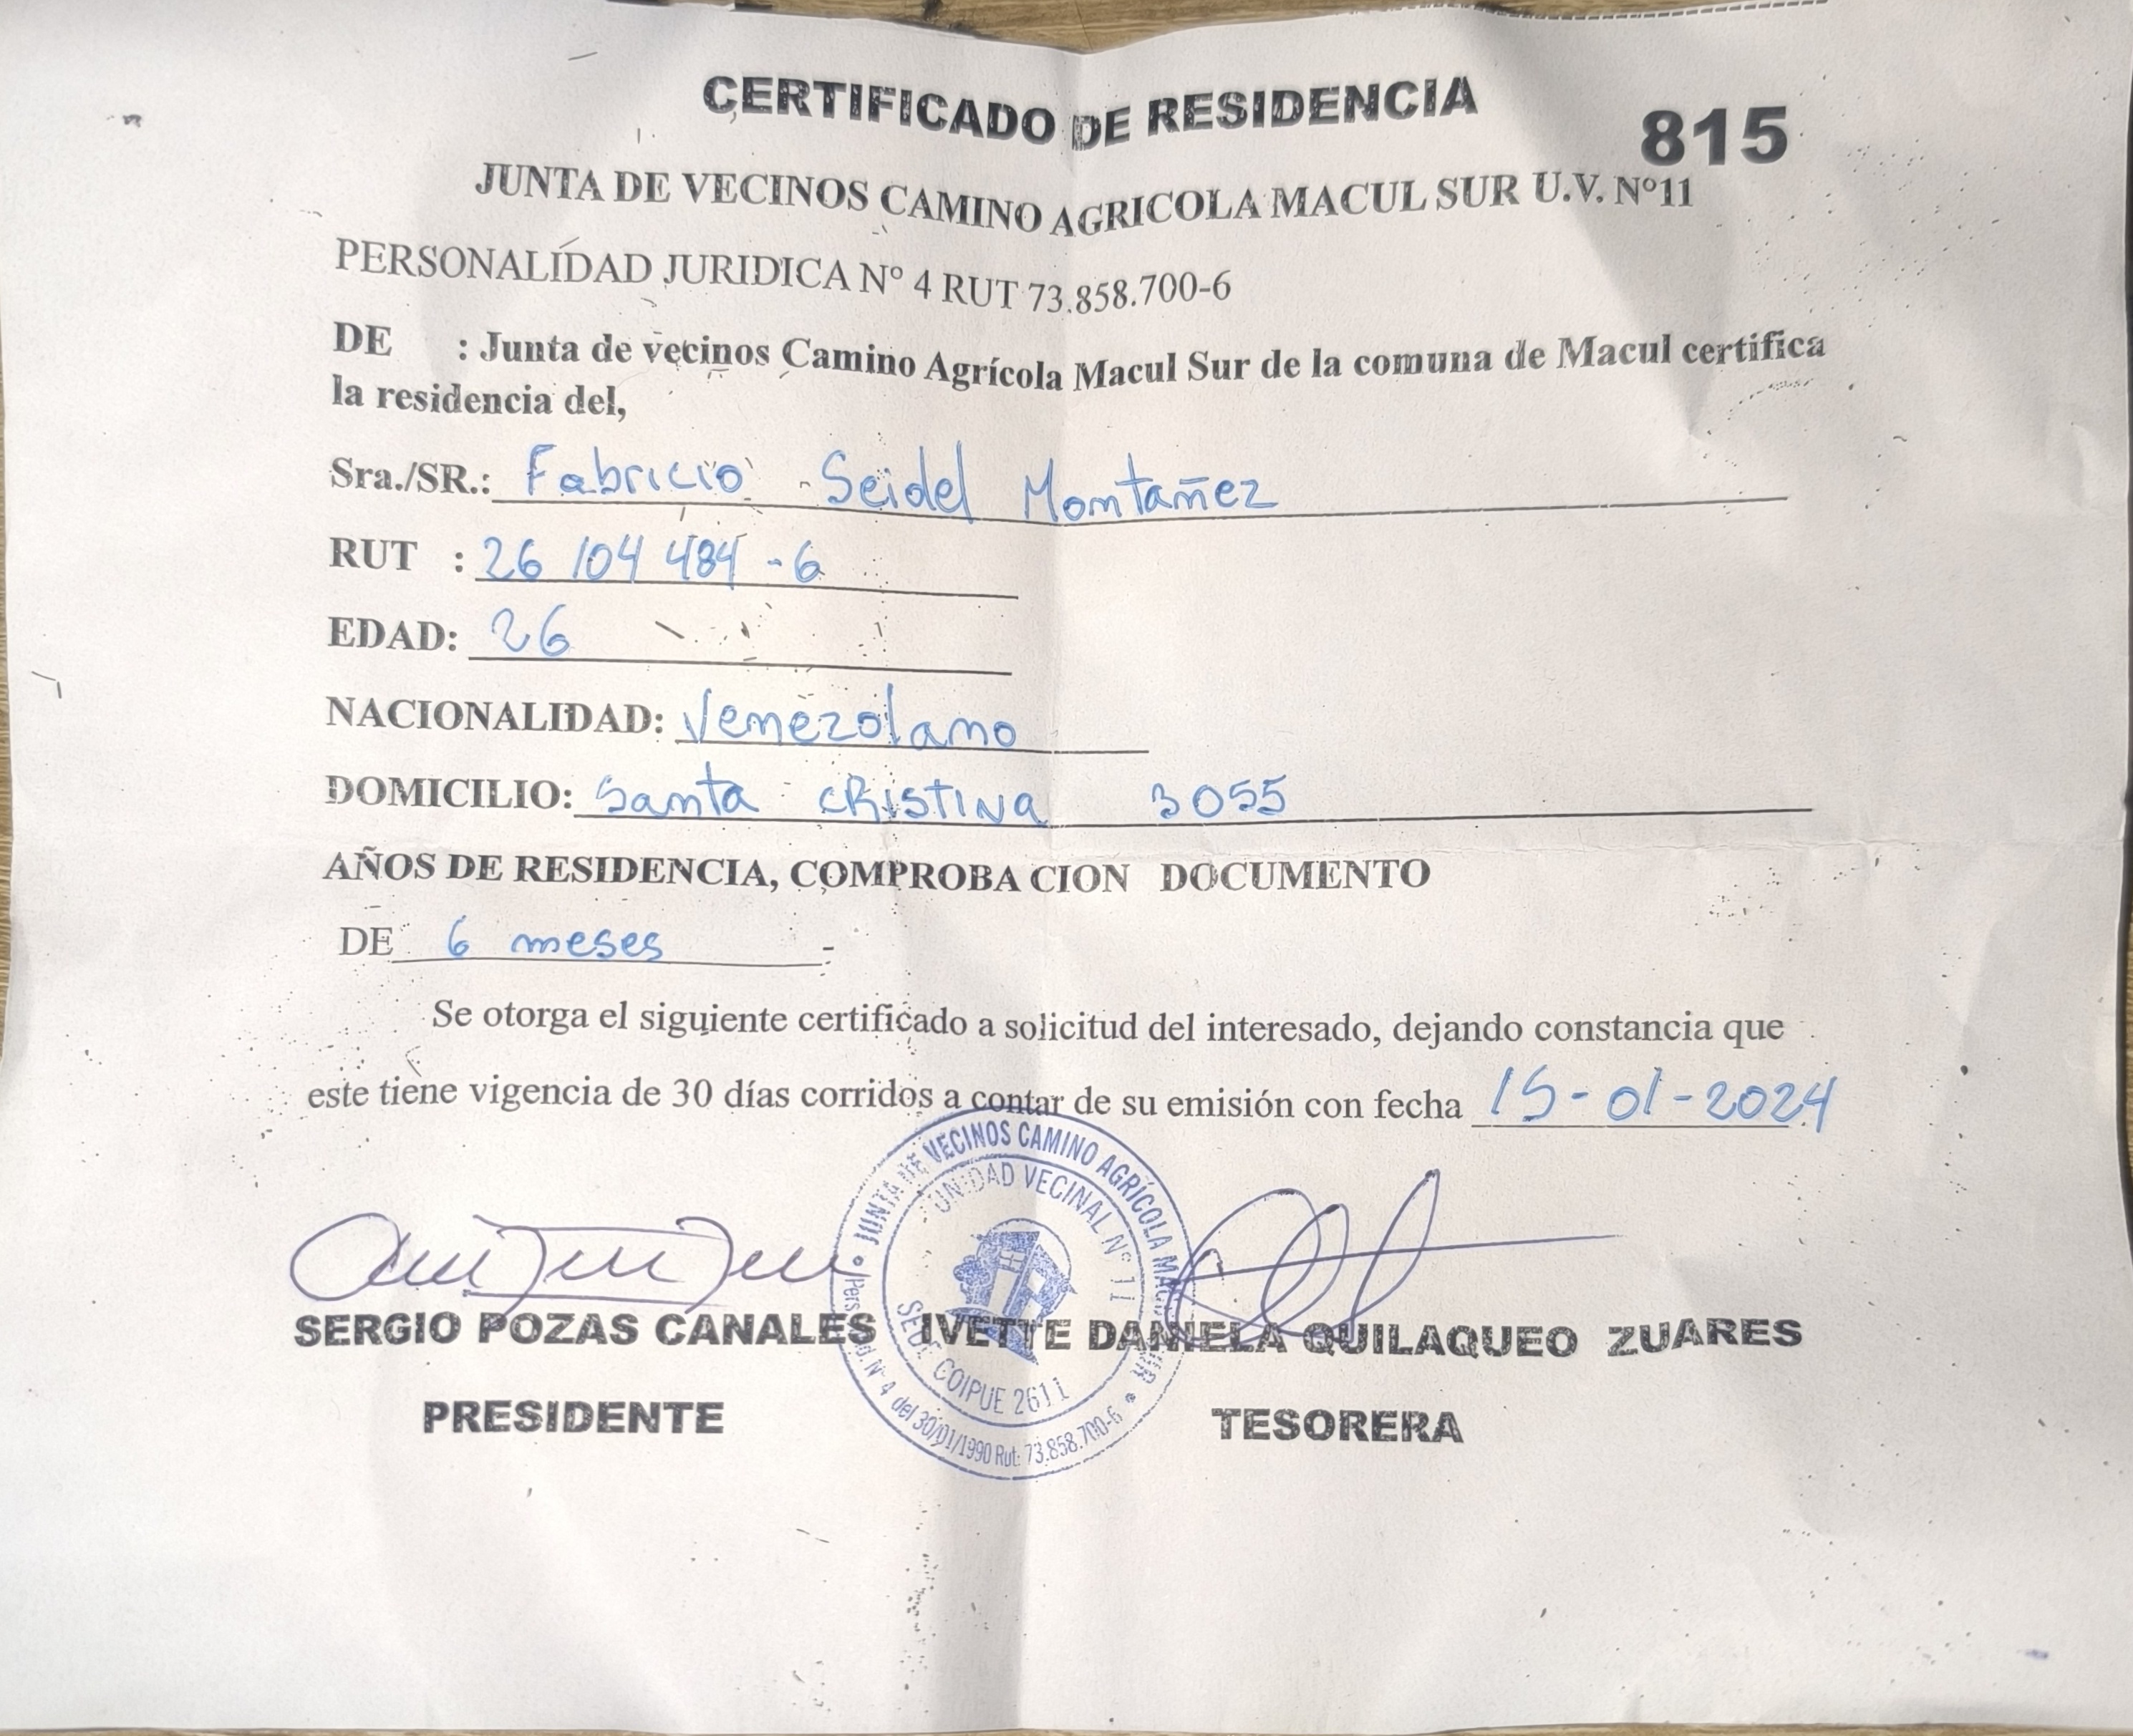 CERTIFICADO DE RESIDENCIA
815
JUNTA DE VECINOS CAMINO AGRICOLA MACUL SUR U.V. Nº11
PERSONALIDAD JURIDICA Nº 4 RUT 73.858.700-6
DE : Junta de vecinos Camino Agrícola Macul Sur de la comuna de Macul certifica
la residencia del,
Sra./SR.: Fabricio Seidel Montañez
RUT : 26 104 484 - 6
EDAD: 26
NACIONALIDAD: Venezolano
DOMICILIO: Santa cRistina 3055
AÑOS DE RESIDENCIA, COMPROBA CION DOCUMENTO
DE 6 meses
Se otorga el siguiente certificado a solicitud del interesado, dejando constancia que
este tiene vigencia de 30 días corridos a contar de su emisión con fecha 15-01-2024
JUNTA DE VECINOS CAMINO AGRÍCOLA MACUL SUR
UNIDAD VECINAL Nº 11
SEDE COIPUE 2611
Pers. Jurd. Nº 4 del 30/01/1990 Rut: 73.858.700-6
SERGIO POZAS CANALES IVETTE DANIELA QUILAQUEO ZUARES
PRESIDENTE TESORERA